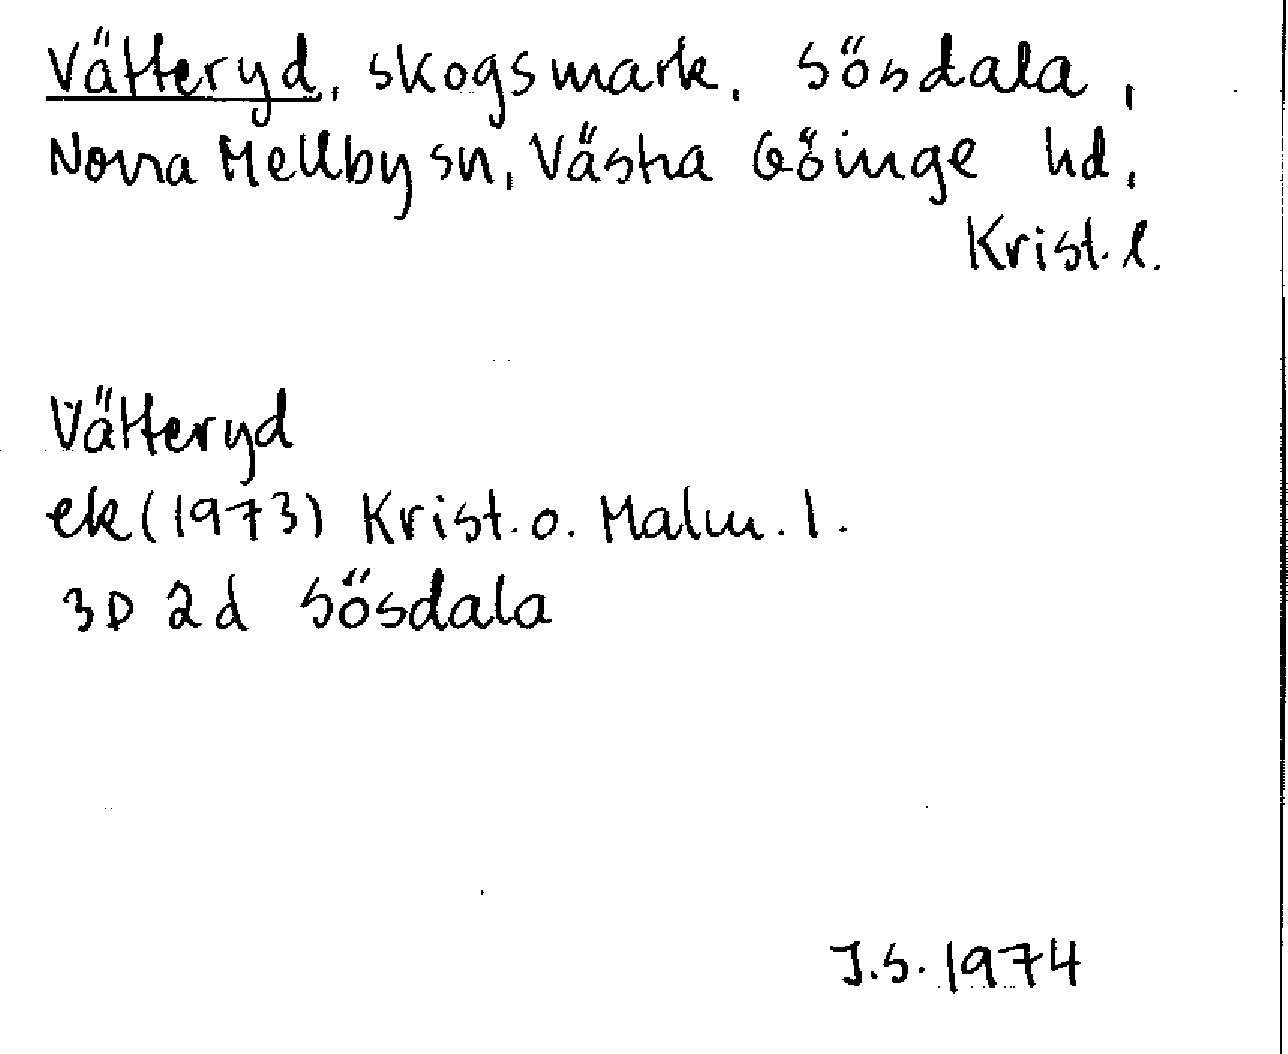 Vätteryd, skogsmark, Sösdala,
Norra Mellby sn, Västra Göinge hd,
Krist. l.
Vätteryd
ek (1973) Krist. o. Malm. l.
3D 2d Sösdala
J.S. 1974